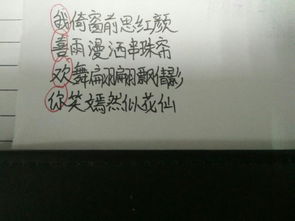 我倚窗前思红颜
喜雨漫洒串珠帘
欢舞翩翩飘倩影
你笑嫣然似花仙